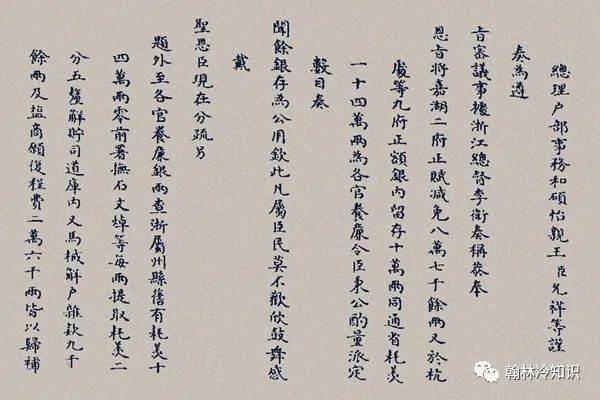 總理户部事務和碩怡親王臣允祥等謹
奏為遵
旨審議事據浙江總督李衛奏稱恭奉
恩旨將嘉湖二府正賦減免八萬七千餘兩又於杭
處等九府正額銀内留存十萬兩同通省耗羡
一十四萬兩為各官養廉令臣秉公酌量派定
數目奏
聞餘銀存為公用欽此凡屬臣民莫不歡欣鼓舞感
戴
聖恩臣現在分疏另
題外至各官養廉銀兩查浙屬州縣舊有耗羡十
四萬兩零前署撫石文焯等每兩提取耗羡二
分五釐解貯司道庫内又馬械解户雜欵九千
餘兩及盐商願復程費二萬六千兩皆以歸補
翰林冷知识